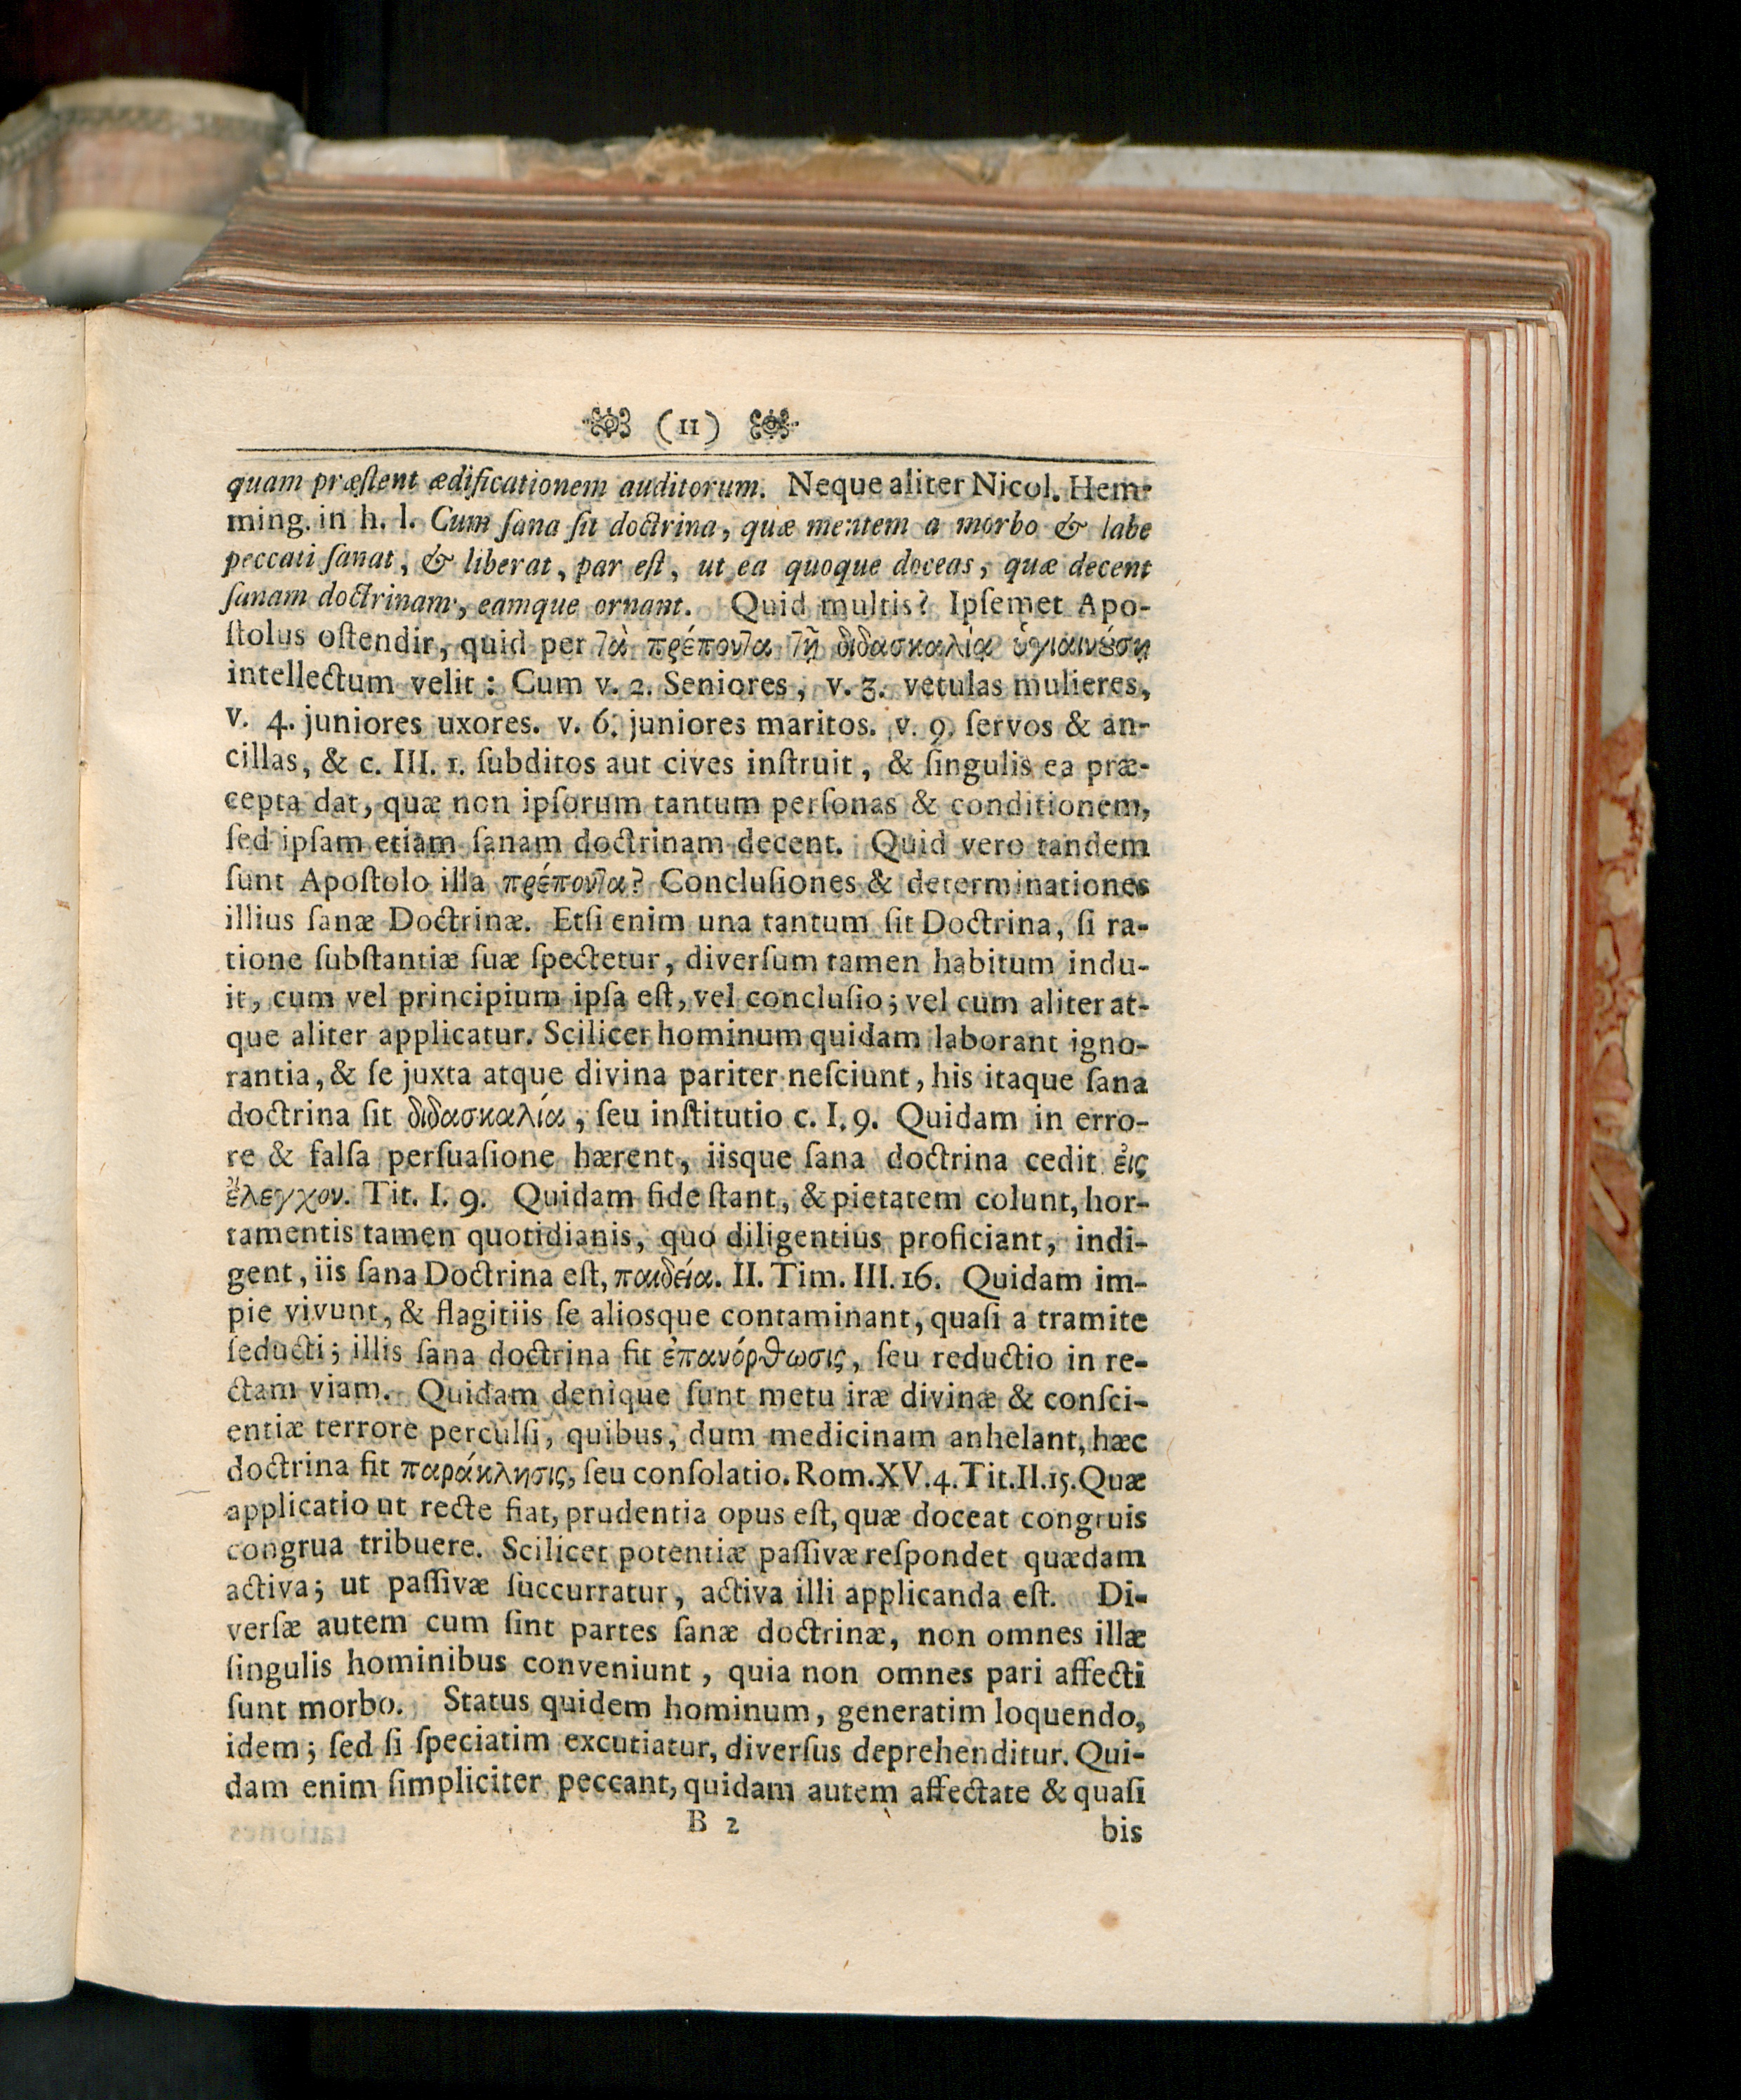 (11)
quam præſtent ædificationem auditorum. Neque aliter Nicol. Hem-
ming. in h. l. Cum ſana ſit doctrina, quæ mentem a morbo & labe
peccati ſanat, & liberat, par eſt, ut ea quoque doceas, quæ decent
ſanam doctrinam, eamque ornant. Quid multis? Ipſemet Apo-
ſtolus oſtendit, quid per τὰ πρέποντα τῇ διδασκαλίᾳ ὑγιαινούσῃ
intellectum velit: Cum v. 2. Seniores, v. 3. vetulas mulieres,
v. 4. juniores uxores. v. 6. juniores maritos. v. 9. ſervos & an-
cillas, & c. III. 1. ſubditos aut cives inſtruit, & ſingulis ea præ-
cepta dat, quæ non ipſorum tantum perſonas & conditionem,
ſed ipſam etiam ſanam doctrinam decent. Quid vero tandem
ſunt Apoſtolo illa πρέποντα? Concluſiones & determinationes
illius ſanæ Doctrinæ. Etſi enim una tantum ſit Doctrina, ſi ra-
tione ſubſtantiæ ſuæ ſpectetur, diverſum tamen habitum indu-
it, cum vel principium ipſa eſt, vel concluſio; vel cum aliter at-
que aliter applicatur. Scilicet hominum quidam laborant igno-
rantia, & ſe juxta atque divina pariter neſciunt, his itaque ſana
doctrina fit διδασκαλία, ſeu inſtitutio c. I, 9. Quidam in erro-
re & falſa perſuaſione hærent, iisque ſana doctrina cedit εἰς
ἔλεγχον. Tit. I. 9. Quidam fide ſtant, & pietatem colunt, hor-
tamentis tamen quotidianis, quo diligentius proficiant, indi-
gent, iis ſana Doctrina eſt, παιδεία. II. Tim. III. 16. Quidam im-
pie vivunt, & flagitiis ſe aliosque contaminant, quaſi a tramite
ſeducti; illis ſana doctrina fit ἐπανόρθωσις, ſeu reductio in re-
ctam viam. Quidam denique ſunt metu iræ divinæ & conſci-
entiæ terrore perculſi, quibus, dum medicinam anhelant, hæc
doctrina fit παράκλησις, ſeu conſolatio. Rom. XV. 4. Tit. II. 15. Quæ
applicatio ut recte fiat, prudentia opus eſt, quæ doceat congruis
congrua tribuere. Scilicet potentiæ paſſivæ reſpondet quædam
activa; ut paſſivæ ſuccurratur, activa illi applicanda eſt. Di-
verſæ autem cum ſint partes ſanæ doctrinæ, non omnes illæ
ſingulis hominibus conveniunt, quia non omnes pari affecti
ſunt morbo. Status quidem hominum, generatim loquendo,
idem; ſed ſi ſpeciatim excutiatur, diverſus deprehenditur. Qui-
dam enim ſimpliciter peccant, quidam autem affectate & quaſi
B 2
bis